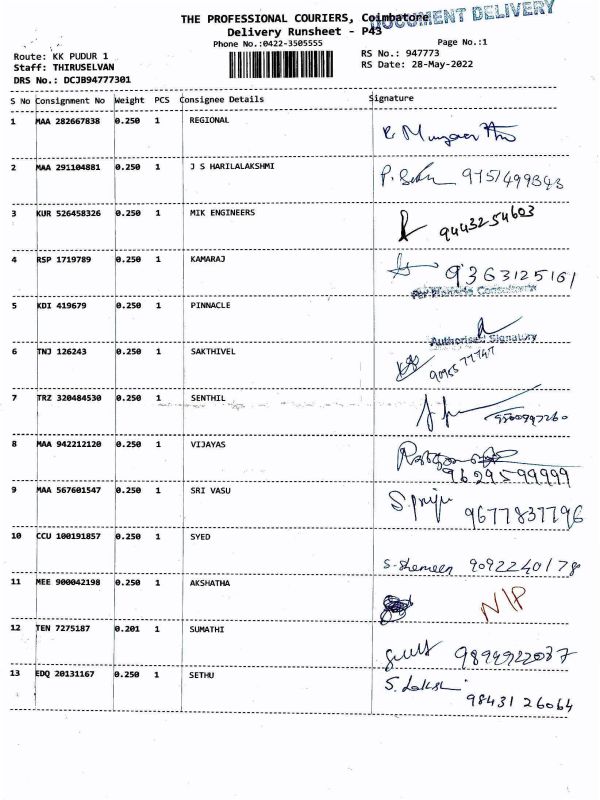 THE PROFESSIONAL COURIERS, Coimbatore
DOCUMENT DELIVERY
Delivery Runsheet - P43
Phone No.:0422-3505555
Page No.:1
Route: KK PUDUR 1
RS No.: 947773
Staff: THIRUSELVAN
RS Date: 28-May-2022
DRS No.: DCJB94777301
S No Consignment No Weight PCS Consignee Details Signature
1 MAA 282667838 0.250 1 REGIONAL
2 MAA 291104881 0.250 1 J S HARILALAKSHMI
3 KUR 526458326 0.250 1 MIK ENGINEERS 9443254603
4 RSP 1719789 0.250 1 KAMARAJ 9363125161
5 KDI 419679 0.250 1 PINNACLE
Authorised Signatory
6 TNJ 126243 0.250 1 SAKTHIVEL
7 TRZ 320484530 0.250 1 SENTHIL
8 MAA 942212120 0.250 1 VIJAYAS
9629599999
9 MAA 567601547 0.250 1 SRI VASU S. Priya 9677837796
10 CCU 100191857 0.250 1 SYED S. Shameen 9092240178
11 MEE 900042198 0.250 1 AKSHATHA N/P
12 TEN 7275187 0.201 1 SUMATHI
13 EDQ 20131167 0.250 1 SETHU 9843126064